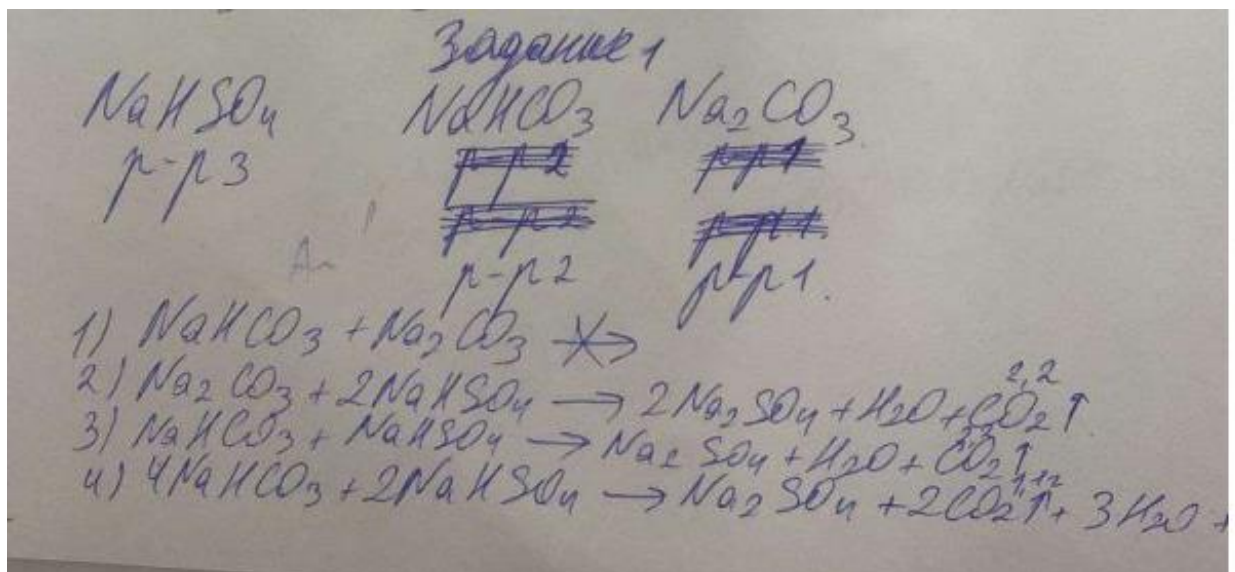 Задание 1
NaHSO4 NaHCO3 Na2CO3
р-р 3 р-р 2 р-р 1
р-р 2 р-р 1.
р-р 2 р-р 1.
1) NaHCO3 + Na2CO3 ↛
2) Na2CO3 + 2NaHSO4 → 2Na2SO4 + H2O + CO2↑
3) NaHCO3 + NaHSO4 → Na2SO4 + H2O + CO2↑
4) 4NaHCO3 + 2NaHSO4 → Na2SO4 + 2CO2↑ + 3H2O +